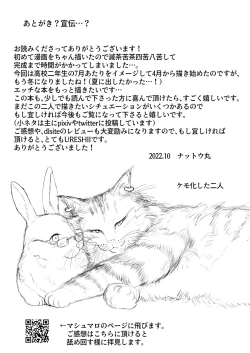 あとがき？宣伝…？
お読みくださってありがとうございます！
初めて漫画をちゃん描いたので滅茶苦茶四苦八苦して
完成まで時間がかかってしまいました…。
今回は高校二年生の7月あたりをイメージして4月から描き始めたのですが、
もう冬になりましたね！（夏に出したかった…！）
エッチな本をもっと描きたいです…
この本も、少しでも読んで下さった方に喜んで頂けたら、すごく嬉しいです。
まだこの二人で描きたいシチュエーションがいくつかあるので
もし宜しければ今後もご覧になって下さると嬉しいです。
（小ネタは主にpixivやtwitterに投稿しています）
ご感想や、dlsiteのレビューも大変励みになりますので、もし宜しければ
頂けると、とてもURESHIIです。
ありがとうございました！
2022.10　ナットウ丸
ケモ化した二人
←マシュマロのページに飛びます。
ご感想はこちらに頂けると
舐め回す様に拝見します。